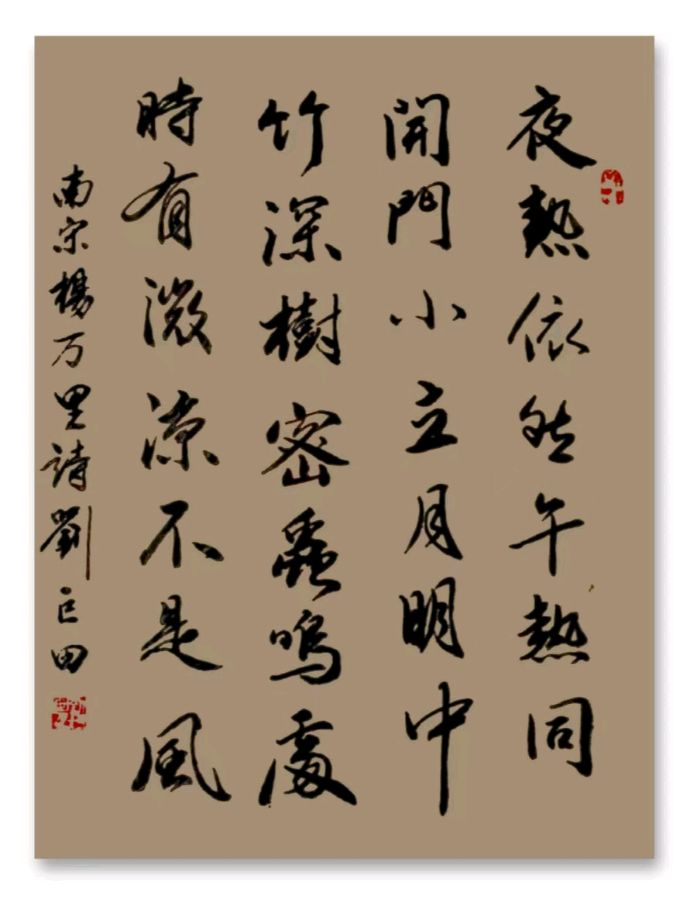 夜熱依然午熱同
開門小立月明中
竹深樹密蟲鳴處
時有微涼不是風
南宋楊万里詩劉田